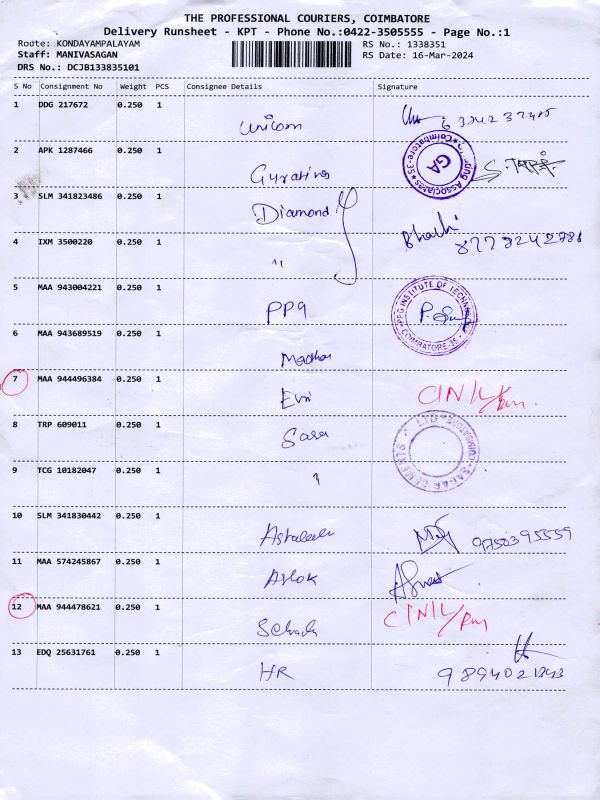 THE PROFESSIONAL COURIERS, COIMBATORE
Delivery Runsheet - KPT - Phone No.:0422-3505555 - Page No.:1
Route: KONDAYAMPALAYAM
Staff: MANIVASAGAN
DRS No.: DCJB133835101
RS No.: 1338351
RS Date: 16-Mar-2024
S No Consignment No Weight PCS Consignee Details Signature
1 DDG 217672 0.250 1 Unicom
2 APK 1287466 0.250 1
COIMBATORE-35
GA
3 SLM 341823486 0.250 1 Diamond
4 IXM 3500220 0.250 1 "
5 MAA 943004221 0.250 1
PPG INSTITUTE OF
COIMBATORE-35
6 MAA 943689519 0.250 1
7 MAA 944496384 0.250 1
8 TRP 609011 0.250 1 Sara
9 TCG 10182047 0.250 1 "
10 SLM 341830442 0.250 1 9750395559
11 MAA 574245867 0.250 1 Ashok
12 MAA 944478621 0.250 1
13 EDQ 25631761 0.250 1 HR